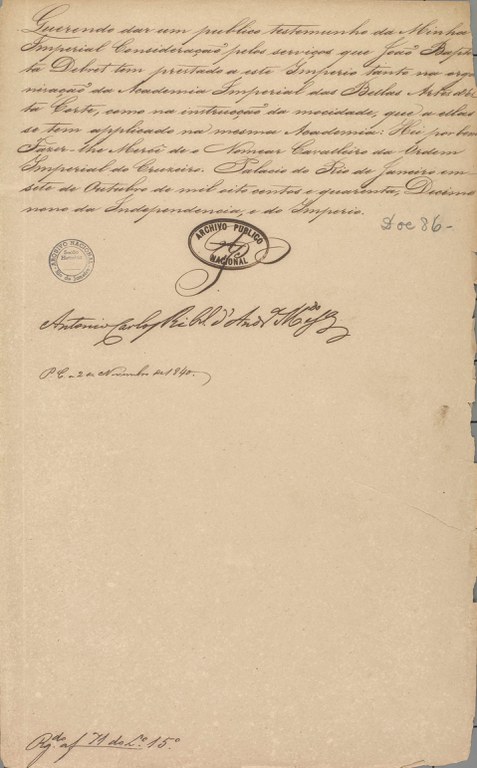 Querendo dar um publico testemunho da Minha
Imperial Consideração pelos serviços que João Baptis
ta Debret tem prestado a este Imperio tanto na orga
nização da Academia Imperial das Bellas Artes des
ta Corte, como na instrucção da mocidade, que a ellas
se tem applicado na mesma Academia: Hei por bem
Fazer-lhe Mercê de o Nomear Cavalleiro da Ordem
Imperial do Cruzeiro. Palacio do Rio de Janeiro em
sete de Outubro de mil oito centos e quarenta, Decimo
nono da Independencia, e do Imperio.
Doc 86-
ARCHIVO PUBLICO
NACIONAL
ARCHIVO NACIONAL
Rio de Janeiro
Antonio Carlos Rib.º d'And.ª Mdo
P. C. 2 de Novembro de 1840.
Rg.do a f 71 do L.º 15.º